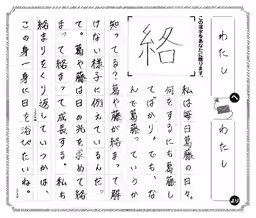 わたし
へ
わたし
より
この漢字をあなたに贈ります。
絡
私は毎日葛藤の日々。
何をするにも葛藤し
てばかり。でも、な
んで葛藤っていうか
知ってる？葛や藤が絡まって解
けない様子に例えているんだっ
て。葛や藤は日の光を求めて絡
まって絡まって成長する。私も
絡まりをくり返していつかは、
この身一身に日を浴びたいね。